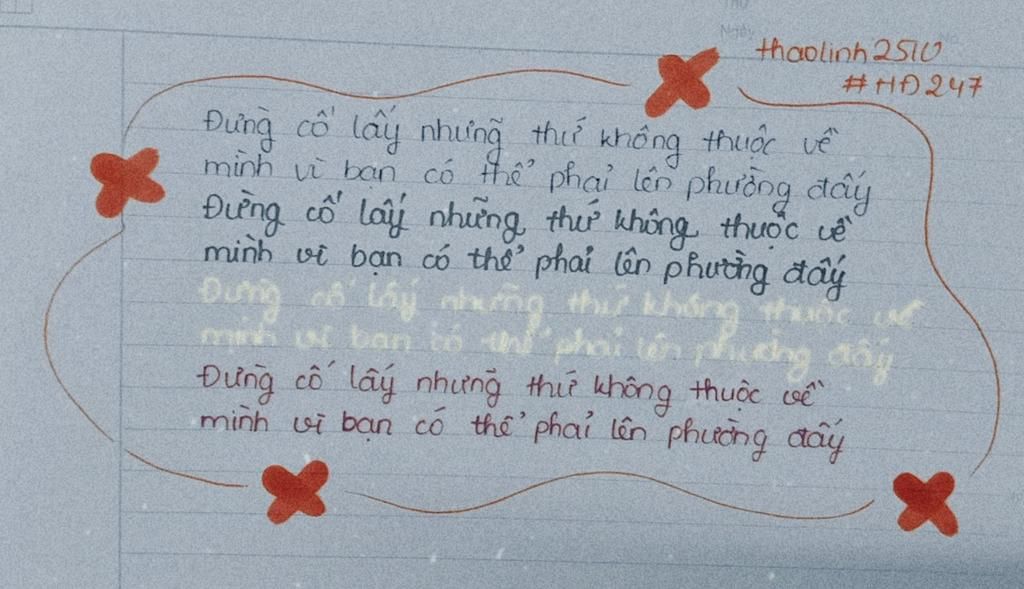 thaolinh2510
#HĐ247
Đừng cố lấy những thứ không thuộc về
mình vì bạn có thể phải lên phường đấy
Đừng cố lấy những thứ không thuộc về
mình vì bạn có thể phải lên phường đấy
Đừng cố lấy những thứ không thuộc về
mình vì bạn có thể phải lên phường đấy
Đừng cố lấy những thứ không thuộc về
mình vì bạn có thể phải lên phường đấy